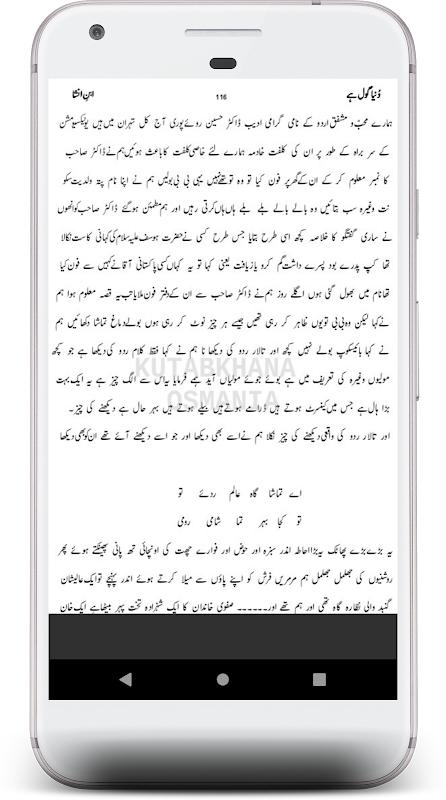 دنیا گول ہے
116
ابن انشا
ہمارے محب و مشفق اردو کے نامی گرامی ادیب ڈاکٹر حسین رورئے پوری آج کل تہران میں ہیں یونیسکو مشن
کے سربراہ کے طور پر ان کی کلفت خادمہ ہمارے لئے خاصی کلفت کا باعث ہوئیں ہم نے ڈاکٹر صاحب
کا نمبر معلوم کر کے ان کے گھر پر فون کیا تو وہ تو تھے نہیں یہی بی بی بولیں ہم نے اپنا نام پتہ ولدیت سکو
نت وغیرہ سب بتائیں وہ بالے بالے بلے بلے ہاں ہاں کرتی رہیں اور ہم مطمئن ہو گئے ڈاکٹر صاحب کو انھوں
نے ساری گفتگو کا خلاصہ کچھ اسی طرح بتایا جس طرح کسی نے حضرت یوسف علیہ سلام کی کہانی کا ست نکالا
تھا کہ پدرے بود پسرے داشت گم کرد باز یافت یعنی کہا تو یہ کہا کسی پاکستانی آقا نے کہیں سے فون کیا
تھا نام میں بھول گئی ہوں اگلے روز ہم نے ڈاکٹر صاحب سے ان کے دفتر فون ملایا تب یہ قصہ معلوم ہوا ہم
نے کہا لیکن وہ بی بی تو یوں ظاہر کر رہی تھیں جیسے ہر چیز نوٹ کر رہی ہوں بولے دماغ تماشا دکھائیں ہم
نے کہا بائیسکوپ بولے نہیں کچھ اور تالار رود کی دیکھا نا ہم نے کہا فقط کلام رود کی دیکھا ہے جو کچھ
مولیوں وغیرہ کی تعریف میں ہے بوئے جوئے مولیاں آید ہمے فرمایا یہ اس سے الگ چیز ہے یہ ایک بہت
بڑا ہال ہے جس میں کنسرٹ ہوتے ہیں ڈرامے ہوتے ہیں بیلے ہوتے ہیں بہر حال ہے دیکھنے کی چیز۔
اور تالار رود کی واقعی دیکھنے کی چیز نکلا ہم نے اسے بھی دیکھا اور جو اسے دیکھنے آئے تھے ان کو بھی دیکھا
KUTABKHANA
OSMANIA
اے تماشا گاہ عالم روئے تو
تو کجا بہر تما شامی روی
یہ بڑے بڑے پھاٹک یہ بڑا احاطہ اندر سبزہ اور حوض اور فوارے چھت کی اونچائی تک پانی پھینکتے ہوئے پھر
روشنیوں کی جھلمل جھلمل ہم مرمریں فرش کو اپنے پاؤں سے میلا کرتے ہوئے اندر پہنچے تو ایک عالیشان
گنبد والی نظارہ گاہ تھی اور ہم تھے اور۔۔۔۔۔۔ صفوی خاندان کا ایک شہزادہ تخت پہر بیٹھا ہے ایک خان